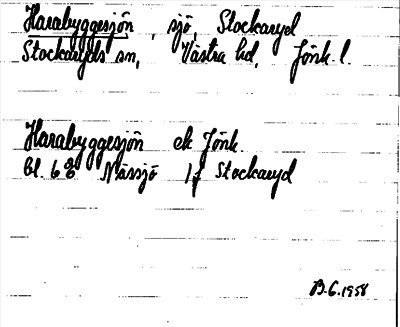 Harabyggesjön, sjö, Stockaryd
Stockaryds sn, Västra hd, Jönk. l.
Harabyggesjön ek Jönk.
Bl. 63 Nässjö 17 Stockaryd
B.G. 1958